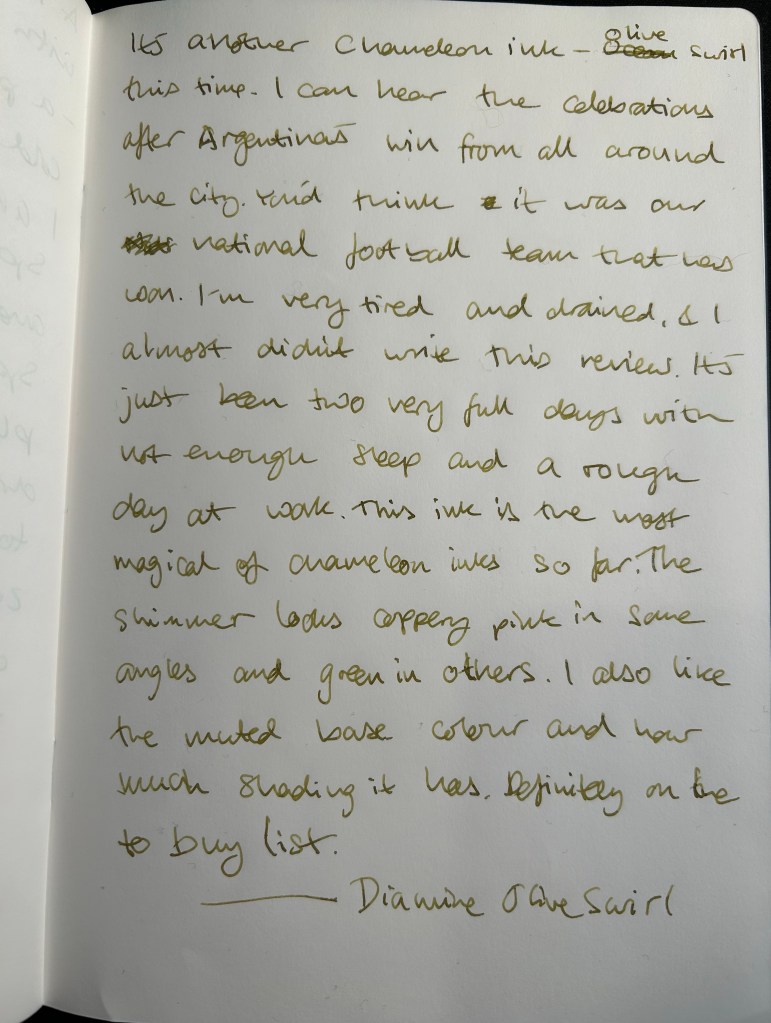 It's another Chameleon ink – Olive swirl
this time. I can hear the celebrations
after Argentina's win from all around
the city. You'd think it was our
national football team that has
won. I'm very tired and drained, & I
almost didn't write this review. It's
just been two very full days with
not enough sleep and a rough
day at work. This ink is the most
magical of chameleon inks so far. The
shimmer looks coppery pink in some
angles and green in others. I also like
the muted base colour and how
much shading it has. Definitely on the
to buy list.
Diamine Olive Swirl